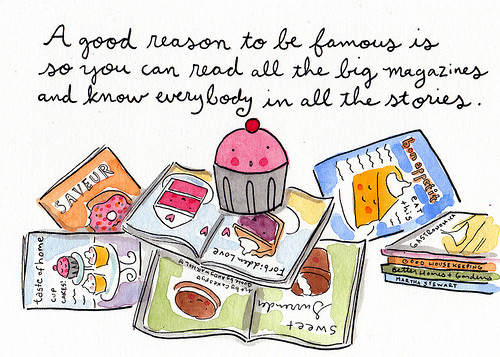 A good reason to be famous is
so you can read all the big magazines
and know everybody in all the stories.
SAVEUR
bon appétit
eat
this
taste of home
CUP
CAKES!
Forbidden Love
Sweet
Surrender
GOOD HOUSEKEEPING
Better Homes + Gardens
MARTHA STEWART